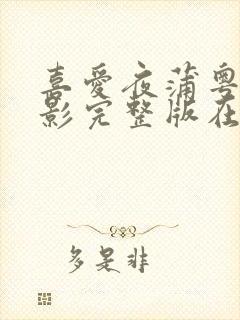 喜愛夜蒲粵
影完整版在
多是非